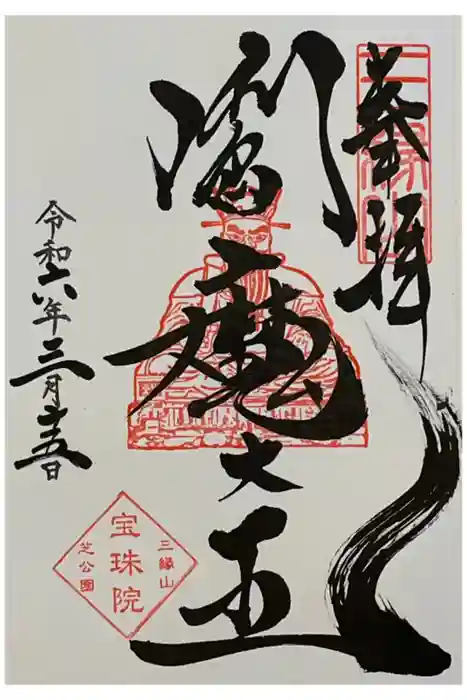 三縁山
奉拝
閻魔大王
令和六年三月十五日
三縁山
宝珠院
芝公園